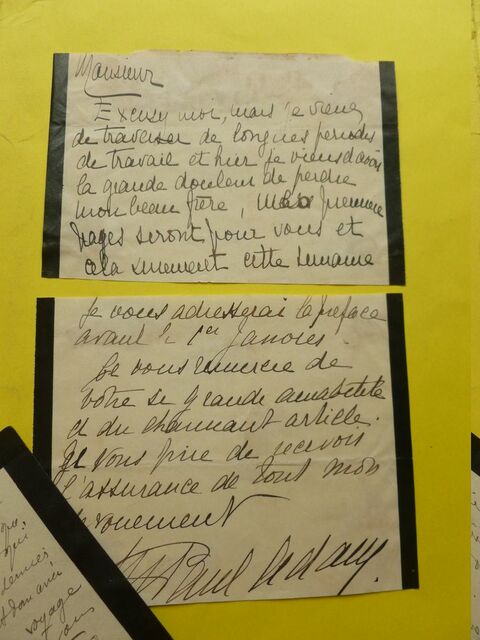 Monsieur
Excusez moi, mais je viens
de traverser de longues périodes
de travail et hier je viens d'avoir
la grande douleur de perdre
mon beau frère, Mes premières
pages seront pour vous et
cela surement cette semaine
Je vous adresserai la préface
avant le 1er Janvier.
Je vous remercie de
votre si grande amabilité
et du charmant article.
Je vous prie de recevoir
l'assurance de tout mon
dévouement
Paul Adam
qui
dernier
voyage
vous